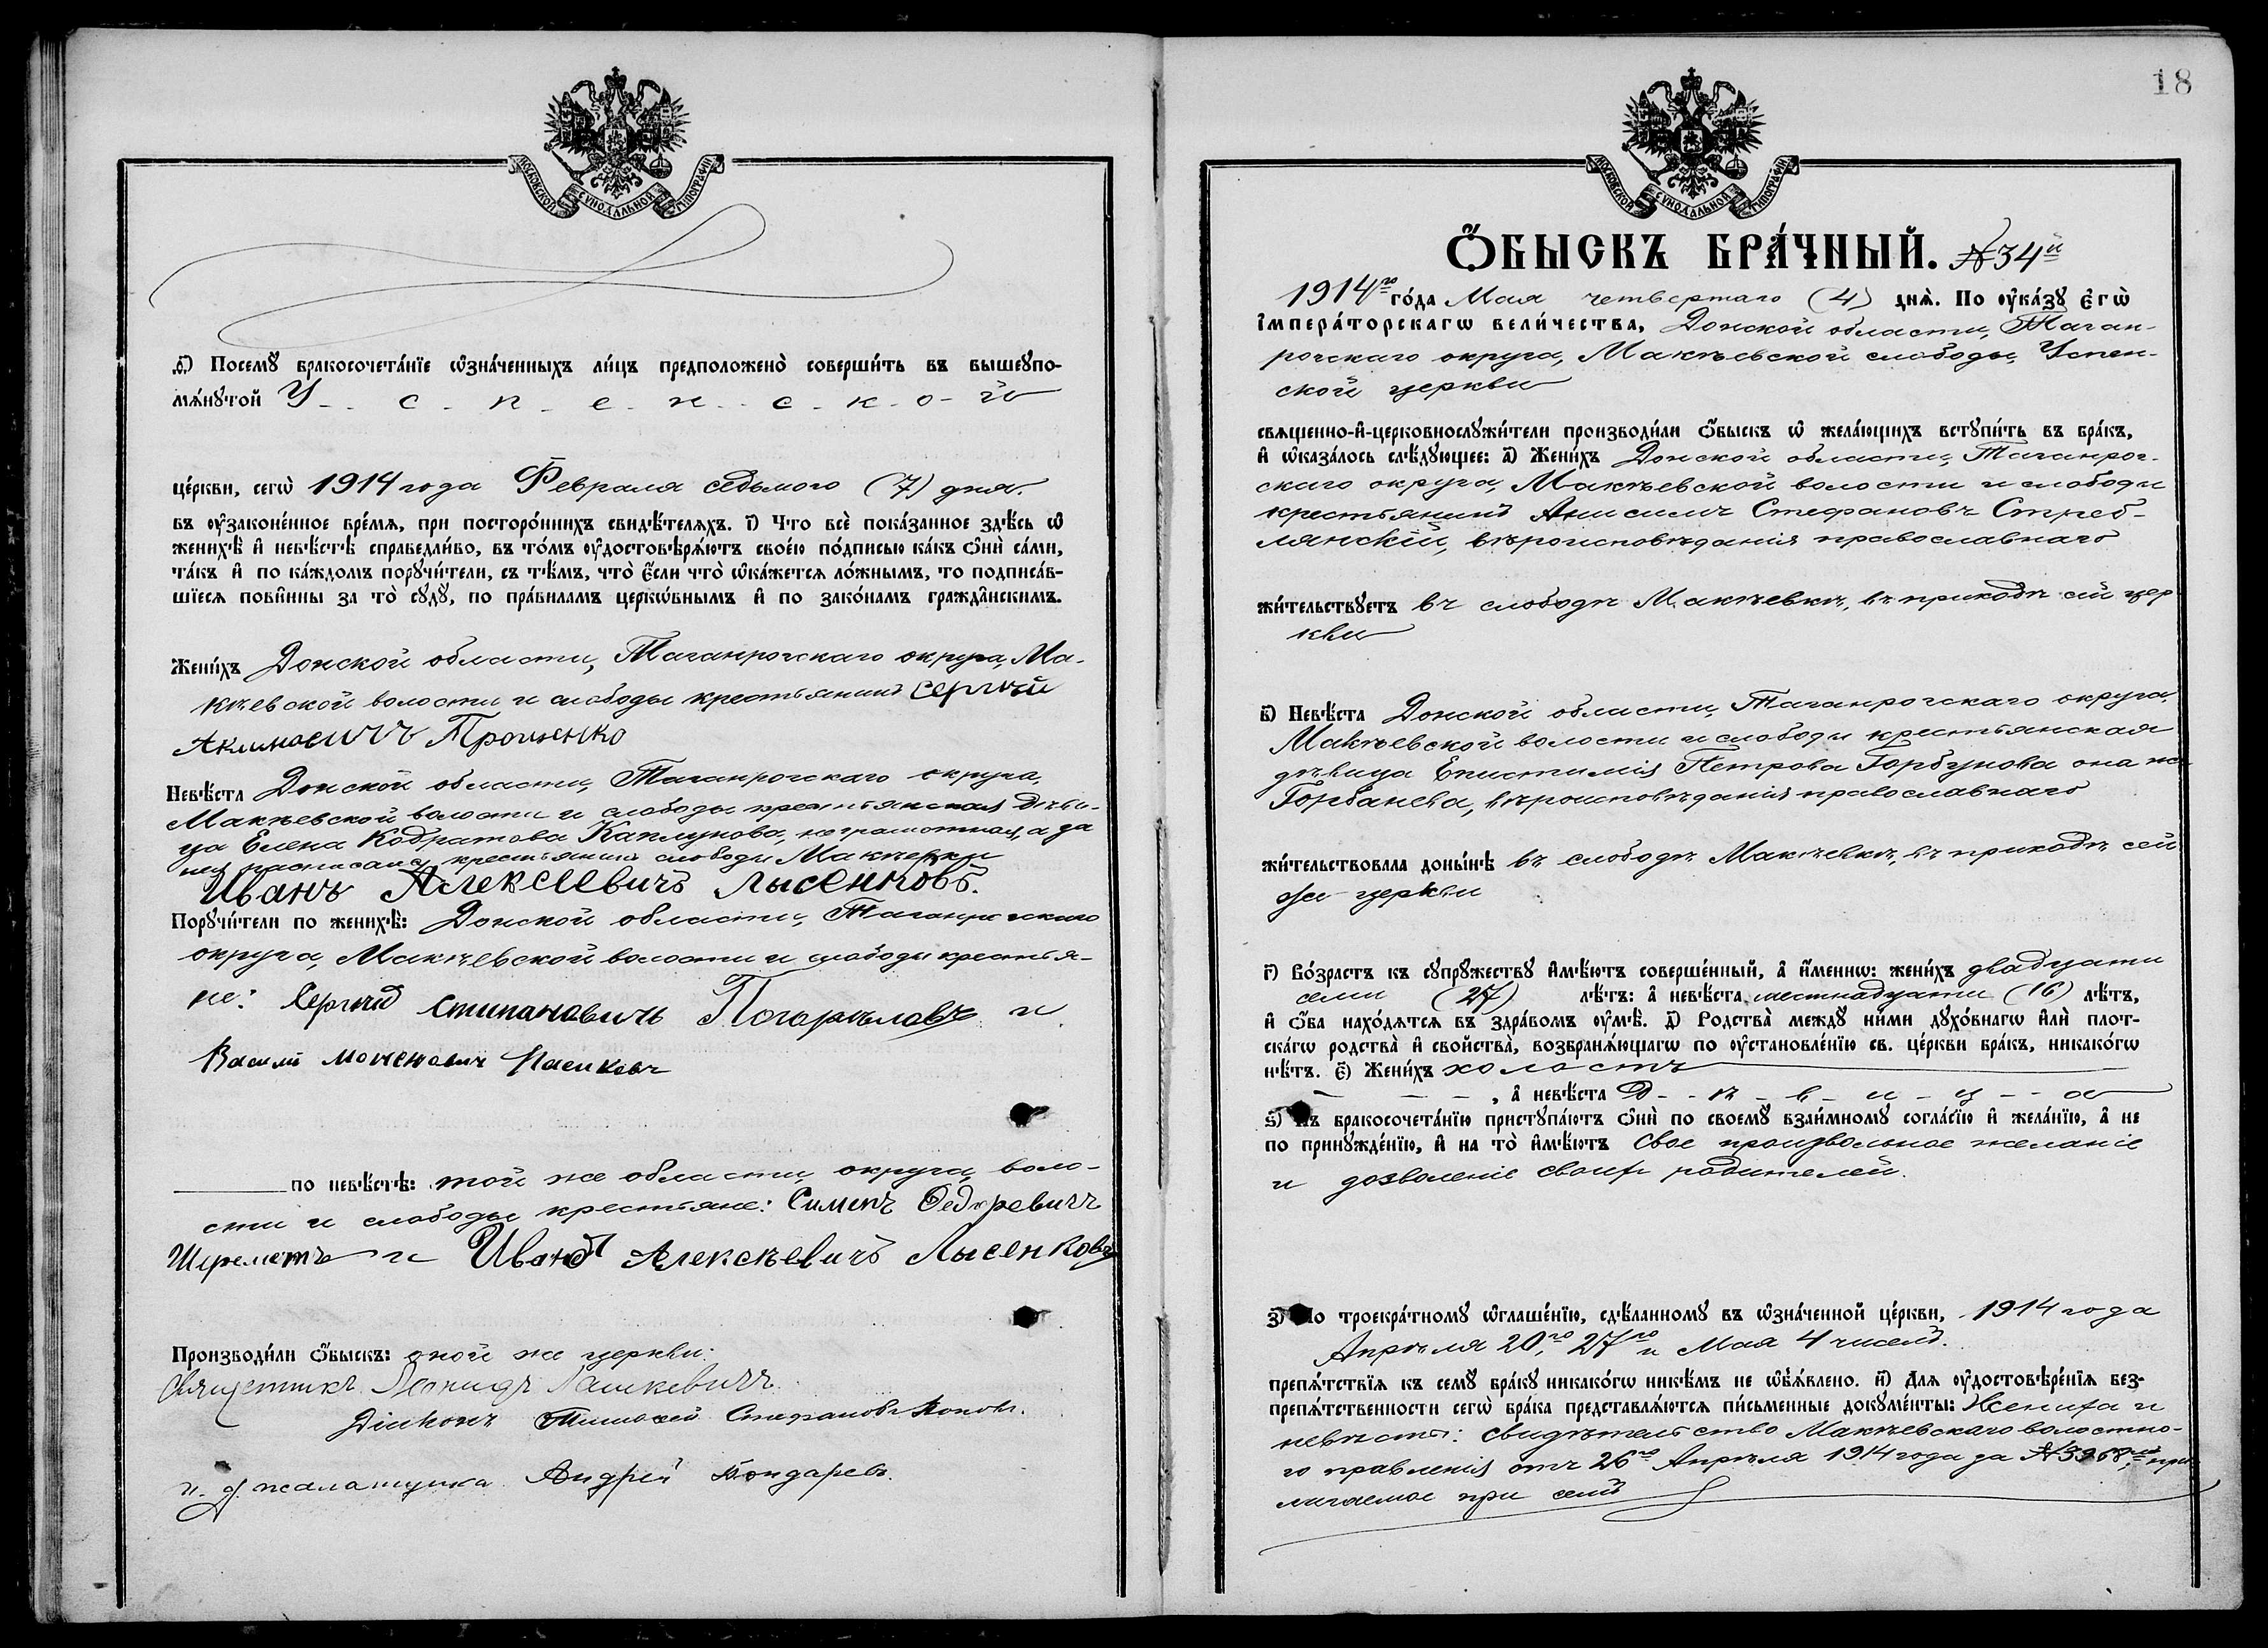 МОСКОВСКОЙ СУНОДАЛЬНОЙ ТИПОГРАФІИ
Ѳ) Посемꙋ бракосочета́нїе ѡ҆зна́ченныхъ ли́цъ предположено̀ соверши́ть въ вышеꙋпо-
мѧ́нꙋтой У - с - п - е - н - с - к - о - й
це́ркви, сегѡ̀ 1914 года Февраля седьмого (7) дня.
въ ᲂу҆законе́нное вре́мѧ, при посторо́ннихъ свидѣ́телѧхъ. І) Что всѐ пока́занное здѣ́сь ѡ҆
женихѣ̀ и҆ невѣ́стѣ справедли́во, въ то́мъ ᲂу҆достовѣрѧ́ютъ свое́ю по́дписью ка́къ ѻ҆нѝ са́ми,
та́къ и҆ по ка́ждомъ порꙋчи́тели, съ тѣ́мъ, что̀ є҆́сли что̀ ѡ҆ка́жетсѧ ло́жнымъ, то подписа́в-
шїесѧ пови́нны за то̀ сꙋдꙋ̀, по пра́виламъ церкѡ́внымъ и҆ по зако́намъ гражда́нскимъ.
Жени́хъ Донской области, Таганрогскаго округа, Ма-
кѣевской волости и слободы крестьянинъ Сергѣй
Акимовичъ Троценко
Невѣ́ста Донской области, Таганрогскаго округа,
Макѣевской волости и слободы крестьянская дѣви-
ца Елена Кодратова Каплунова, неграмотная, а за
нея расписался крестьянинъ слободы Макѣевки
Иванъ Алексѣевичъ Лысенковъ.
Порꙋчи́тели по женихѣ̀: Донской области, Таганрогскаго
округа, Макѣевской волости и слободы крестья-
не: Сергѣй Стипановичъ Погорѣловъ и
Васили
по невѣ́стѣ: той же области, округа, воло-
сти и слободы крестьяне: Симонъ Федоревичъ
Шереметъ и Иванъ Алексѣевичъ Лысенковъ
Производи́ли ѻ҆́быскъ: оной же церкви:
Священникъ Леонидъ Пашкевичъ.
Діаконъ Тимофей Стефановъ Поповъ.
и. д. псаломщика Андрей Бондаревъ.
18
МОСКОВСКОЙ СУНОДАЛЬНОЙ ТИПОГРАФІИ
Ѻ҆́БЫСКЪ БРА́ЧНЫЙ. №34й
1914го го́да Мая четвертаго (4) днѧ̀. По ᲂу҆ка́зꙋ є҆гѡ̀
і҆мпера́торскагѡ вели́чества, Донской области, Таган-
рогскаго округа, Макѣевской слободы, Успен-
ской церкви
свѧщенно-и҆-церковнослꙋжи́тели производи́ли ѻ҆́быскъ ѡ҆ жела́ющихъ встꙋпи́ть въ бра́къ,
и҆ ѡ҆каза́лось слѣ́дꙋющее: а҃) Жени́хъ Донской области, Таганрог-
скаго округа, Макѣевской волости и слободы
крестьянинъ Анисимъ Стефановъ Стреб-
лянскій, вѣроисповѣданія православнаго
жи́тельствꙋетъ въ слободѣ Макѣевкѣ, въ приходѣ сей цер
кви
в҃) Невѣ́ста Донской области, Таганрогскаго округа,
Макѣевской волости и слободы крестьянская
дѣвица Епистимія Петрова Горбунова она же
Горбанева, вѣроисповѣданія православнаго
жи́тельствовала доны́нѣ въ слободѣ Макѣевкѣ, въ приходѣ сей
же церкви
г҃) Во́зрастъ къ сꙋпрꙋ́жествꙋ и҆мѣ́ютъ соверше́нный, а҆ и҆́меннѡ: жени́хъ двадцати
семи (27) лѣ́тъ: а҆ невѣ́ста шестнадцати (16) лѣ́тъ,
и҆ ѻ҆́ба нахо́дѧтсѧ въ здра́вомъ ᲂу҆мѣ̀. д҃) Родства̀ междꙋ̀ ни́ми дꙋхо́внагѡ и҆лѝ плот-
ска́гѡ родства̀ и҆ свойства̀, возбранѧ́ющагѡ по ᲂу҆становле́нїю св. це́ркви бра́къ, никако́гѡ
нѣ́тъ. є҃) Жени́хъ холостъ
, а҆ невѣ́ста д - ѣ - в - и - ц - а
ѕ҃) Къ бракосочета́нїю пристꙋпа́ютъ ѻ҆нѝ по своемꙋ̀ взаи́мномꙋ согла́сїю и҆ жела́нїю, а҆ не
по принꙋжде́нїю, и҆ на то̀ и҆мѣ́ютъ свое произвольное желаніе
и дозволеніе своихъ родителей.
з҃) По троекра́тномꙋ ѡ҆глаше́нїю, сдѣ́ланномꙋ въ ѡ҆зна́ченной це́ркви, 1914 года
Апрѣля 20го, 27го и Мая 4 чиселъ.
препѧ́тствїѧ къ семꙋ̀ бра́кꙋ никако́гѡ никѣ́мъ не ѡ҆б̾ѧ́влено. и҃) Длѧ ᲂу҆достовѣре́нїѧ без-
препѧ́тственности сегѡ̀ бра́ка представлѧ́ютсѧ пи́сьменные докꙋме́нты: Жениха и
невѣсты: свидѣтельство Макѣевскаго волостно-
го правленія отъ 26го Апрѣля 1914 года за №3968, при
лагаемое при семъ